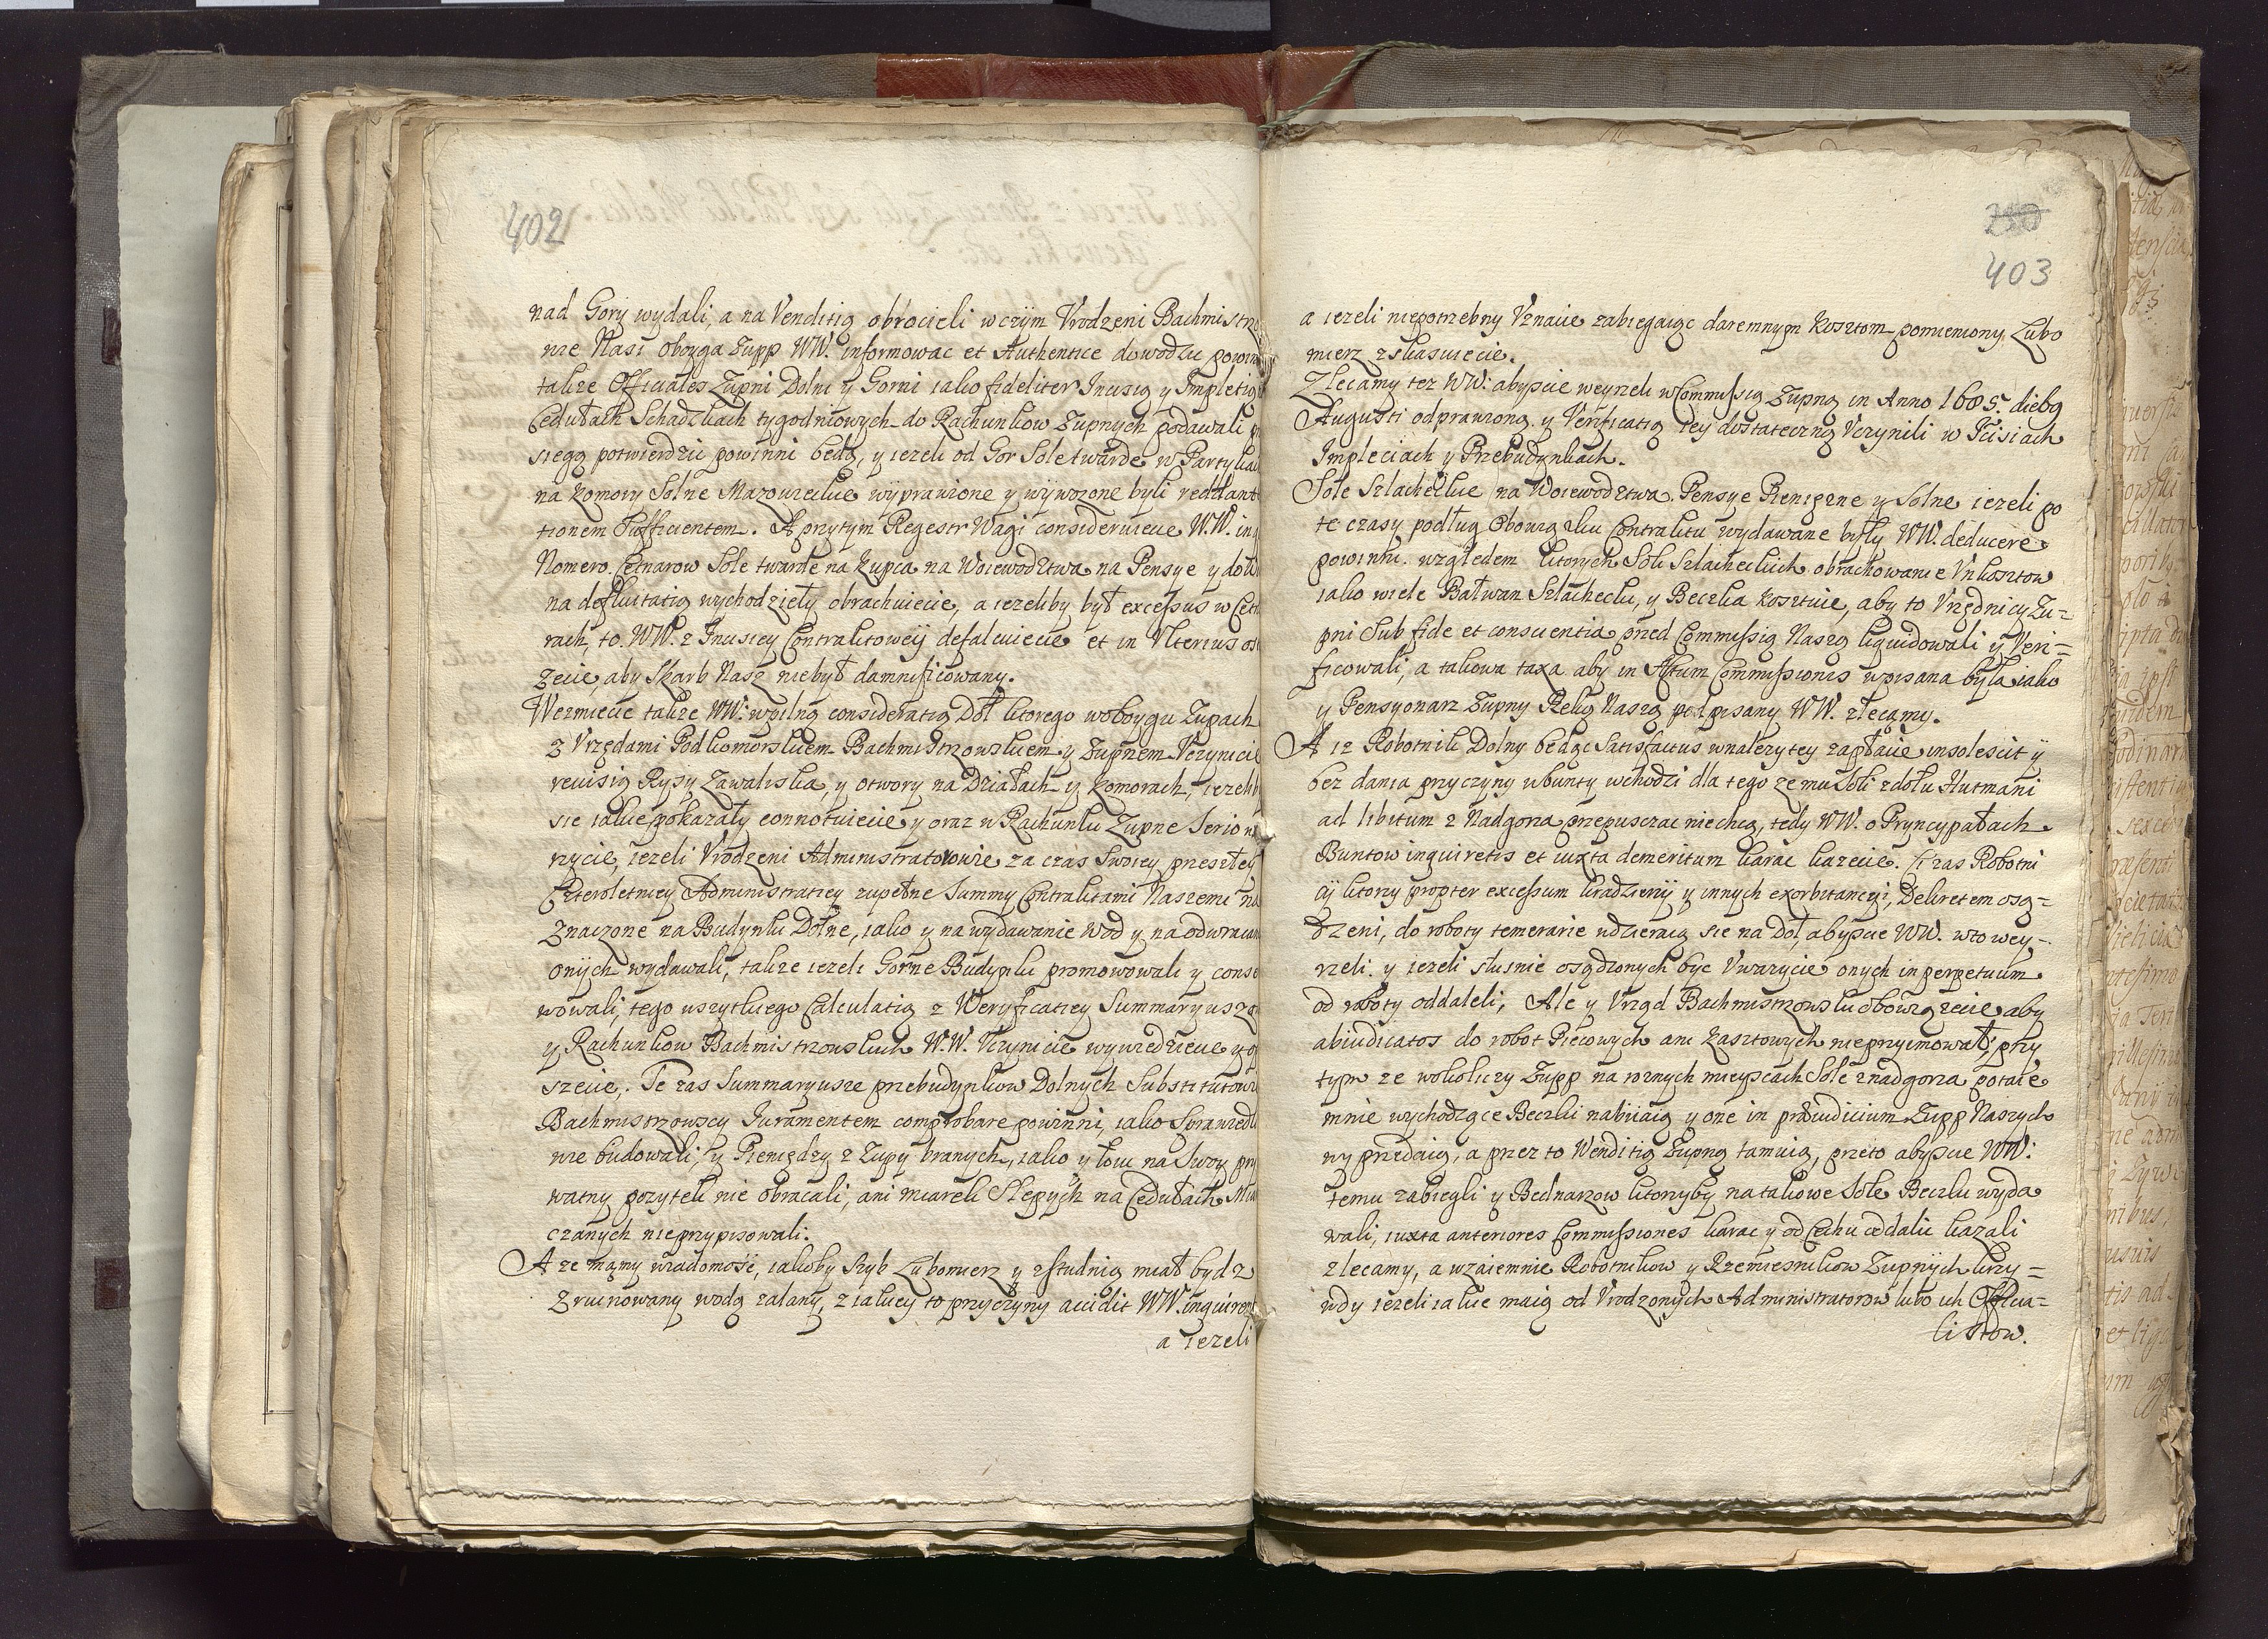 402
nad Gory wydali, a na Venditią obrocieli w czym Vrodzeni Bachmistrzo
nie Nasi oboyga Zupp WW. informowac et Authentice dowodzic powin
takze Officiales Zupni Dolni y Gorni iako fideliter Inusią y Impletią
Cedułach Schadzkach tygodniowych do Rachunkow Zupnych podawali
siegą potwierdzic powinni będą, y iezeli od Gor Sole twarde w Partykach
na Komory Solne Mazowieckie wyprawione y wywozone byli reddant
tionem Sufficientem. A przytym Regestr Wagi considerujecie W.W. in
Nomero Cetnarow Sole twarde na Kupca na Woiewodztwa na Pensye y do
na defluitatią wychodzieły obrachuiecie, a iezeliby był excessus w Cet
rach, to WW. z Inusiey Contraktowey defalcuiecie et in Vlterius os
zecie, aby Skarb Nasz niebył damnificowany.
Wezmiecie takze WW: w pilną consideratią Doł ktorego w oboygu Zupach
z Vrzędami Podkomorskiem Bachmistrzowskiem y Zupnem Vczynicie
reuisią Rysy Zawaliska, y otwory na Działach y Komorach, iezeli
sie iakie pokazały connotuiecie y oraz w Rachunku Zupne Serio w
rzycie, iezeli Vrodzeni Administratorowie za czas Swoiey przeszłey
Czteroletniey Administratiey zupełne Summy Contraktami Naszemi na
Znaczone na Budynki Dolne, iako y na wydawanie Wod y na odwracan
onych wydawali, takze iezeli Gorne Budynki promowowali y conse
wowali, tego wszytkiego Calculatią z Weryficatiey Summaryuszo
y Rachunkow Bachmistrzowskich W.W. Vczynicie wywiedziecie y o
szecie. Te zas Summaryusze przebudynkow Dolnych Substitutowie
Bachmistrzowscy Iuramentem comprobare powinni, iako Sprawiedli
wie budowali, y Pieniędzy z Zupy branych, iako y łoiu na Swoy pry
watny pozytek nie obracali, ani miareli Slepych na Cedułach
czanych nieprzypisowali.
A ze mamy wiadomość, iakoby Szyb Lubomierz y z studnią miał bydz
Zruinowany wodą zalany, z iakiey to przyczyny accidit WW. inquirent
a iezeli
403
a iezeli niepotrzebny Vznacie zabiegaiąc daremnym Kosztom pomieniony Lubo
mierz zskasuiecie.
Zlecamy tez WW: abyscie weyzreli w Commissią Zupną in Anno 1685. die 6ta
Augusti odprawioną y Verificatią tey dostateczną Vczynili w Iscisiach
Impleciach y Przebudynkach.
Sole Szlacheckie na Woiewodztwa, Pensye Pieniężne y Solne iezeli po
te czasy podług obowiązku Contraktu wydawane były WW. deducere
powinni. względem ktorych Soli Szlacheckich obrachowanie Vnkosztow
iako wiele Bałwan Szlachecki, y Beczka Kosztuie, aby to Vrzędnicy Zu=
pni Sub fide et conscientia przed Commissią Naszą liquidowali y Veri=
ficowali, a takowa taxa aby in Actum Commissionis wpisana była iako
y Pensyonarz Zupny Ręką Naszą podpisany WW. zlecamy.
A iz Robotnik Dolny będąc Satisfactus w nalezytey zapłacie insolescit y
bez dania przyczyny w bunty wchodzi dla tego ze mu Soli z dołu Hutmani
ad libitum z Nadgorza przepuszczac niechcą, tedy WW. o Pryncypałach
Buntow inquiretis et iuxta demeritum karac kazecie. Ci zas Robotni
cy ktorzy propter excessum kradzierzy y innych exorbitancyi, Dekretem osą=
dzeni, do roboty temerarie wdzieraią sie na Doł, abyscie WW. w to wey=
rzeli y iezeli słusnie osądzonych byc Vwazycie onych in perpetuum
od roboty oddaleli, Ale y Vrząd Bachmistrzowski obowiązecie aby
abiudicatos do robot Piecowych ani Kasztowych nieprzyimował, przy
tym ze w okolicy Zupp na roznych mieyscach Sole z nadgorza potaie
mnie wychodzące Beczki nabiiaią y one in præiudicium Zupp Naszych
wyprzedaią, a przez to Wenditią Zupną tamuią, przeto abyscie WW:
temu zabiegli y Bednarzow ktorzyby na takowe Sole Beczki wyda
wali, iuxta anteriores Commissiones karac y od Cechu oddalic kazali
zlecamy, a wzaiemnie Robotnikow y Rzemiesnikow Zupnych krzy=
wdy iezeli iakie maią od Vrodzonych Administratorow lubo ich Officia=
listow.